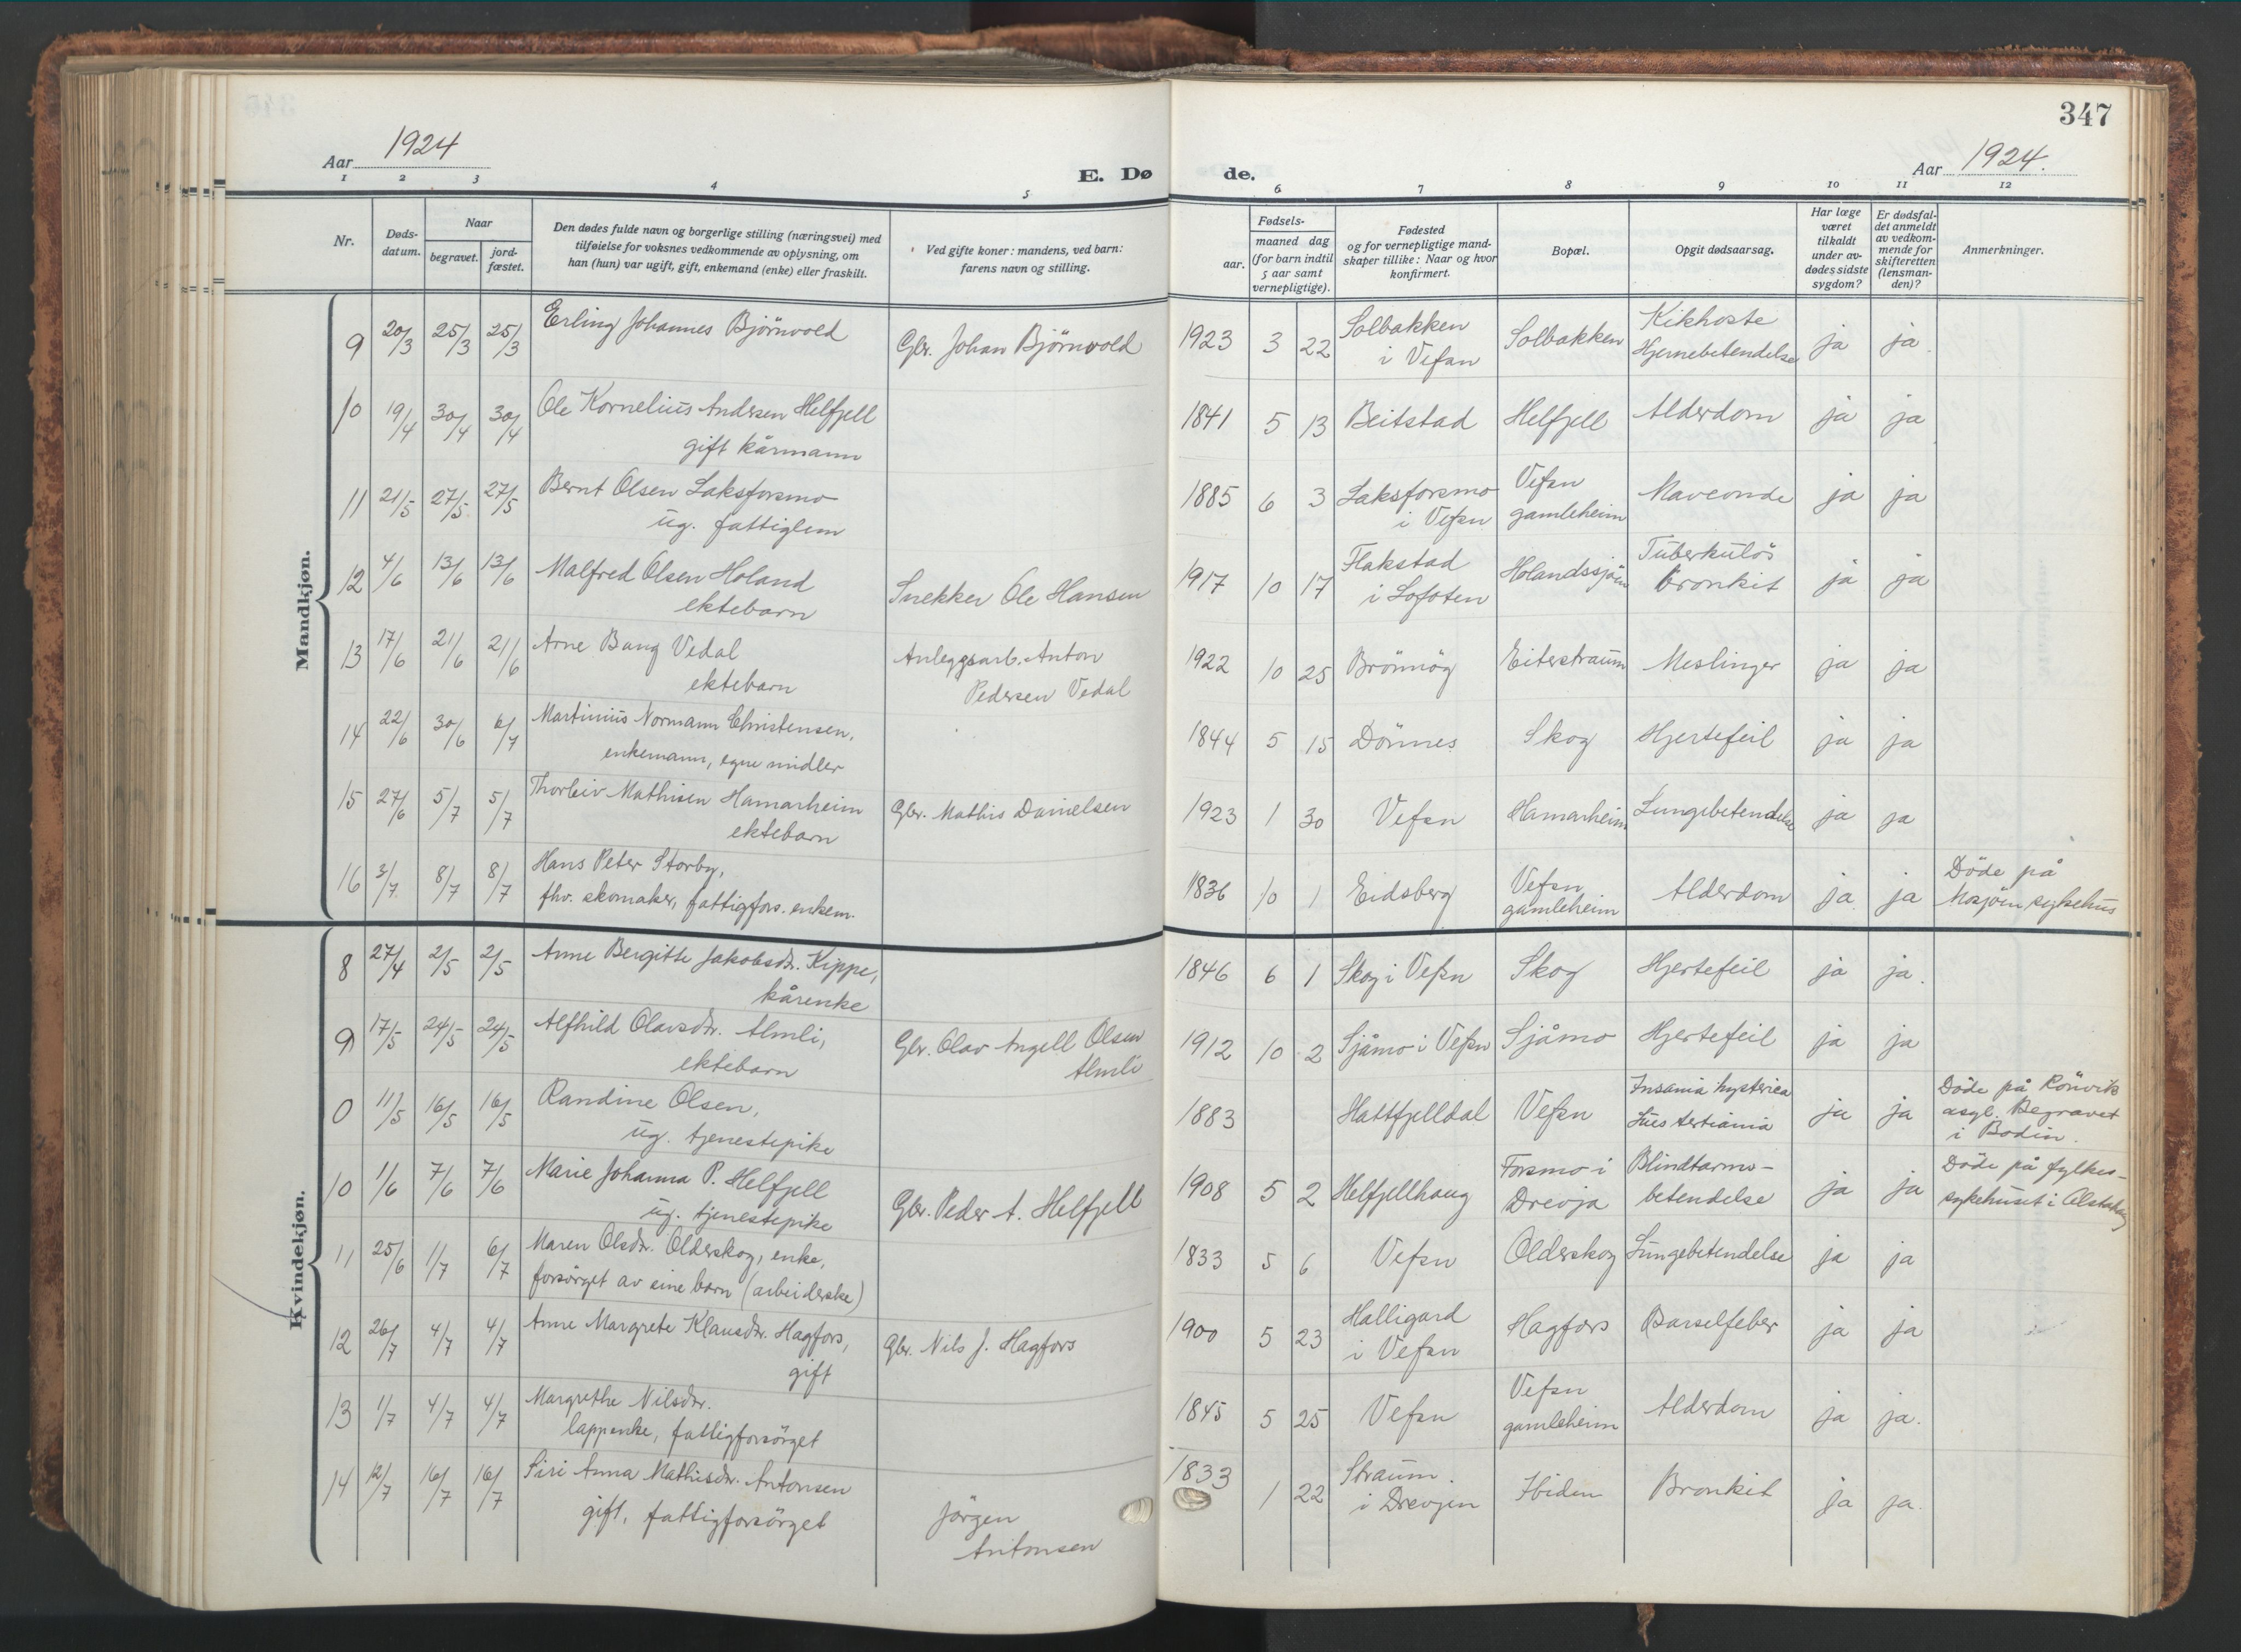 347
Aar 1924
E. Dø
de.
Aar 1924.
1 2 3 4 5 6 7 8 9 10 11 12
Nr.
Døds-
datum.
Naar
begravet.
jord-
fæstet.
Den dødes fulde navn og borgerlige stilling (næringsvei) med
tilføielse for voksnes vedkommende av oplysning, om
han (hun) var ugift, gift, enkemand (enke) eller fraskilt.
Ved gifte koner: mandens, ved barn:
farens navn og stilling.
Fødsels-
aar.
maaned dag
(for barn indtil
5 aar samt
vernepligtige).
Fødested
og for vernepligtige mand-
skaper tillike: Naar og hvor
konfirmert.
Bopæl.
Opgit dødsaarsag.
Har læge
været
tilkaldt
under av-
dødes sidste
sygdom?
Er dødsfal-
det anmeldt
av vedkom-
mende for
skifteretten
(lensman-
den)?
Anmerkninger.
Mandkjøn.
9 20/3 25/3 25/3 Erling Johannes Bjørnvold Gbr. Johan Bjørnvold 1923 3 22 Solbakken
i Vefsn Solbakken Kikhoste
Hjernebetendelse ja ja
10 19/4 30/4 30/4 Ole Kornelius Andersen Helfjell
gift kårmann 1841 5 13 Beitstad Helfjell Alderdom ja ja
11 21/5 27/5 27/5 Bernt Olsen Laksforsmo
ug. fattiglem 1885 6 3 Laksforsmo
i Vefsn Vefsn
gamleheim Maveonde ja ja
12 4/6 13/6 13/6 Malfred Olsen Holand
ektebarn Snekker Ole Hansen 1917 10 17 Flakstad
i Lofoten Holandssjöen Tuberkulös
bronkit ja ja
13 17/6 21/6 21/6 Arne Bang Vedal
ektebarn Anleggsarb. Anton
Pedersen Vedal 1922 10 25 Brönnög Eiterstraum Meslinger ja ja
14 22/6 30/6 6/7 Martinius Normann Christensen,
enkemann, egne midler 1844 5 15 Dönnes Skog Hjertefeil ja ja
15 27/6 5/7 5/7 Thorleiv Mathisen Hamarheim
ektebarn Gbr. Mathis Danielsen 1923 1 30 Vefsn Hamarheim Lungebetendelse ja ja
16 3/7 8/7 8/7 Hans Peter Storby,
fhv. skomaker, fattigfors. enkem. 1836 10 1 Eidsberg Vefsn
gamleheim Alderdom ja ja Döde på
Mosjöen sykehus
Kvindekjøn.
8 27/4 2/5 2/5 Anne Bergitte Jakobsdr. Kippe,
kårenke 1846 6 1 Skog i Vefsn Skog Hjertefeil ja ja.
9 17/5 24/5 24/5 Alfhild Olavsdr. Almli,
ektebarn Gbr. Olav Angell Olsen
Almli 1912 10 2 Sjåmo i Vefsn Sjåmo Hjertefeil ja ja
0 11/5 16/5 16/5 Randine Olsen,
ug. tjenestepike 1883 Hattfjelldal Vefsn Insania hysterica
Lues tertiania ja ja Döde på Rönvik
asyl. Begravet
i Bodin.
10 1/6 7/6 7/6 Marie Johanna P. Helfjell
ug. tjenestepike Gbr. Peder A. Helfjell 1908 5 2 Helfjellhaug Forsmo i
Drevja Blindtarms-
betendelse ja ja Döde på fylkes-
sykehuset i Alstahaug
11 25/6 1/7 6/7 Maren Olsdr. Olderskog, enke,
forsörget av sine barn (arbeiderske) 1833 5 6 Vefsn Olderskog Lungebetendelse ja ja
12 26/7 4/7 4/7 Anne Margrete Klausdr. Hagfors,
gift Gbr. Nils J. Hagfors 1900 5 23 Halligard
i Vefsn Hagfors Barselfeber ja ja
13 1/7 4/7 4/7 Margrethe Nilsdr.
lappenke, fattigforsörget 1845 5 25 Vefsn Vefsn
gamleheim Alderdom ja ja.
14 12/7 16/7 16/7 Siri Anna Mathisdr. Antonsen
gift, fattigforsörget Jörgen
Antonsen 1833 1 22 Straum
i Drevjen Bronkit ja ja.